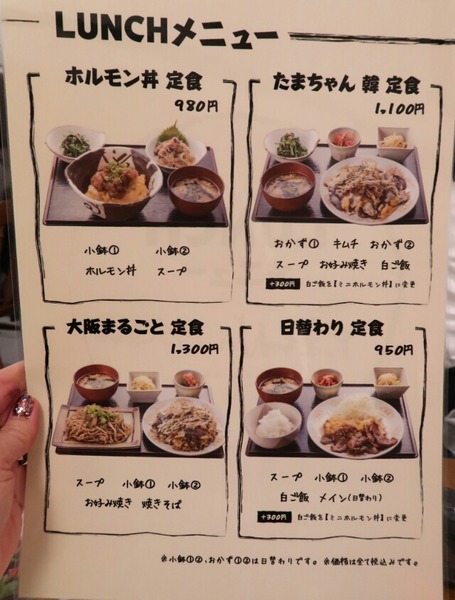 LUNCHメニュー
ホルモン丼 定食
980円
小鉢① 小鉢②
ホルモン丼 スープ
たまちゃん 韓 定食
1,100円
おかず① キムチ おかず②
スープ お好み焼き 白ご飯
+300円 白ご飯を【ミニホルモン丼】に変更
大阪まるごと 定食
1,300円
スープ 小鉢① 小鉢②
お好み焼き 焼きそば
日替わり 定食
950円
スープ 小鉢① 小鉢②
白ご飯 メイン(日替わり)
+300円 白ご飯を【ミニホルモン丼】に変更
※小鉢①②、おかず①②は日替わりです。 ※価格は全て税込みです。